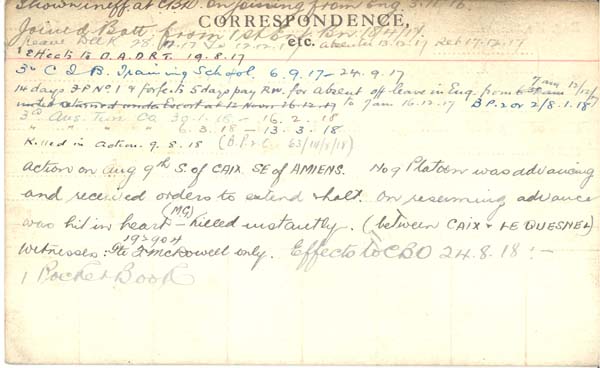 Shown ineff. at CBD. on joining from Eng. 3.11.16.
CORRESPONDENCE,
etc.
Joined Batt. from 1st Ent. Bn. 18/4/17.
Leave 28.11.17 to 12.12.17 absentee 13.12.17 Ret 17.12.17
Effects to D.A.D.R.T. 19.8.17
3rd C I B. Training School. 6.9.17 – 24.9.17
14 days F.P. No. 1 & forfe. to 5 days pay R.W. for absent off leave in Eng. from 7 am 12/12/17
until returned under Escort at 12 Noon 16.12.17 to 7 am 16.12.17 B.P. 2 or 2/8.1.18
3rd Aus. Tun Co 30.1.18 – 16.2.18
" " " " 6.3.18 – 13.3.18
Killed in action. 9.8.18
action on Aug 9th S. of CAIX SE of AMIENS. No 9 Platoon was advancing
and received orders to extend & halt. On resuming advance
was hit in heart (MG) – killed instantly. (between CAIX & LE QUESNEL)
Witnesses: Pte F McDowell only. Effects to CBO 24.8.18 :–
1 Pocket Book